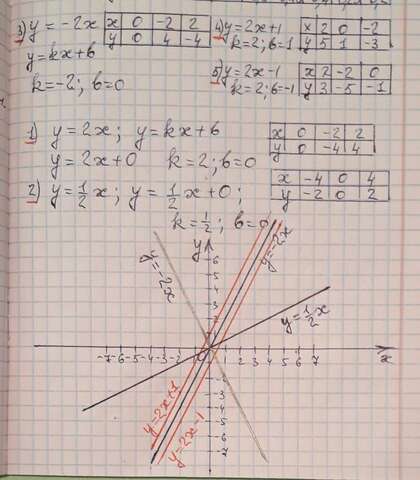 3) y=-2x | x | 0 | -2 | 2
y | 0 | 4 | -4
y=kx+b
k=-2; b=0
4) y=2x+1 | x | 2 | 0 | -2
k=2; b=1 | y | 5 | 1 | -3
5) y=2x-1 | x | 2 | -2 | 0
k=2; b=-1 | y | 3 | -5 | -1
1) y=2x; y=kx+b | x | 0 | -2 | 2
y=2x+0 k=2; b=0 | y | 0 | -4 | 4
2) y=½x; y=½x+0; | x | -4 | 0 | 4
k=½; b=0 | y | -2 | 0 | 2
y
6
5
4
3
2
1
y=-2x
y=-2x
y=½x
-7 -6 -5 -4 -3 -2 1 2 3 4 5 6 7
x
y=2x+1
y=2x-1
-1
-2
-3
-4
-5
-6
-7